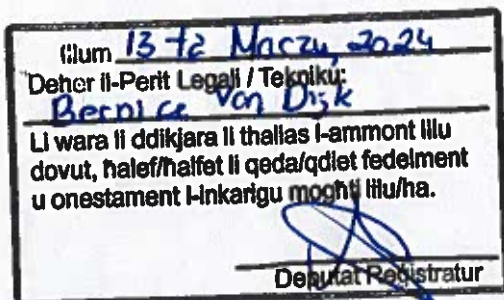 Illum 13 ta Marzu, 2024
Deher il-Perit Legali / Tekniku:
Bernice Van Dijk
Li wara li ddikjara li thallas l-ammont lilu
dovut, ħalef/ħalfet li qeda/qdiet fedelment
u onestament l-inkarigu mogħti lilu/ha.
Deputat Registratur